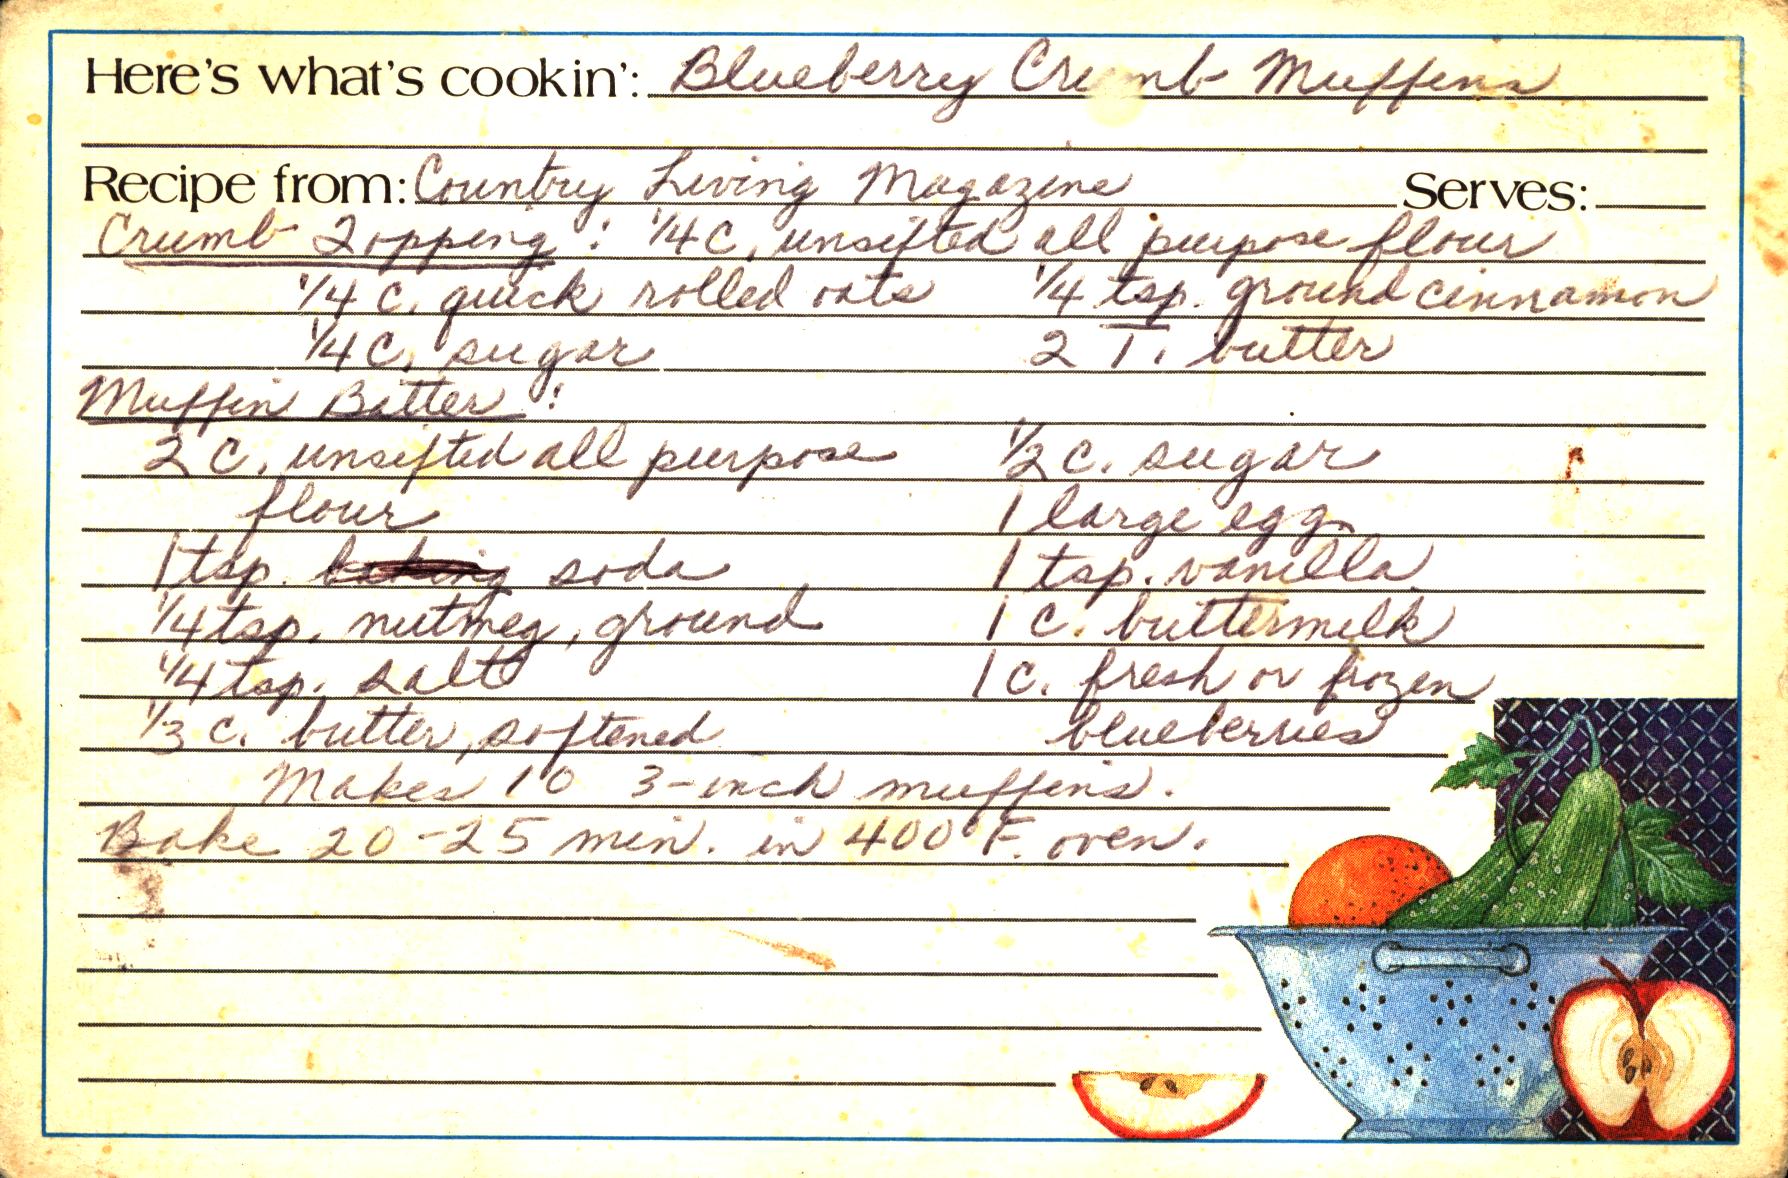 Here's what's cookin': Blueberry Crumb Muffins
Recipe from: Country Living Magazine Serves:
Crumb Topping: 1/4 c. unsifted all purpose flour
1/4 c. quick rolled oats 1/4 tsp. ground cinnamon
1/4 c. sugar 2 T. butter
Muffin Batter:
2 c. unsifted all purpose 1/2 c. sugar
flour 1 large egg
1 tsp. baking soda 1 tsp. vanilla
1/4 tsp. nutmeg, ground 1 c. buttermilk
1/4 tsp. salt 1 c. fresh or frozen
1/3 c. butter, softened blueberries
Makes 10 3-inch muffins.
Bake 20-25 min. in 400° F. oven.